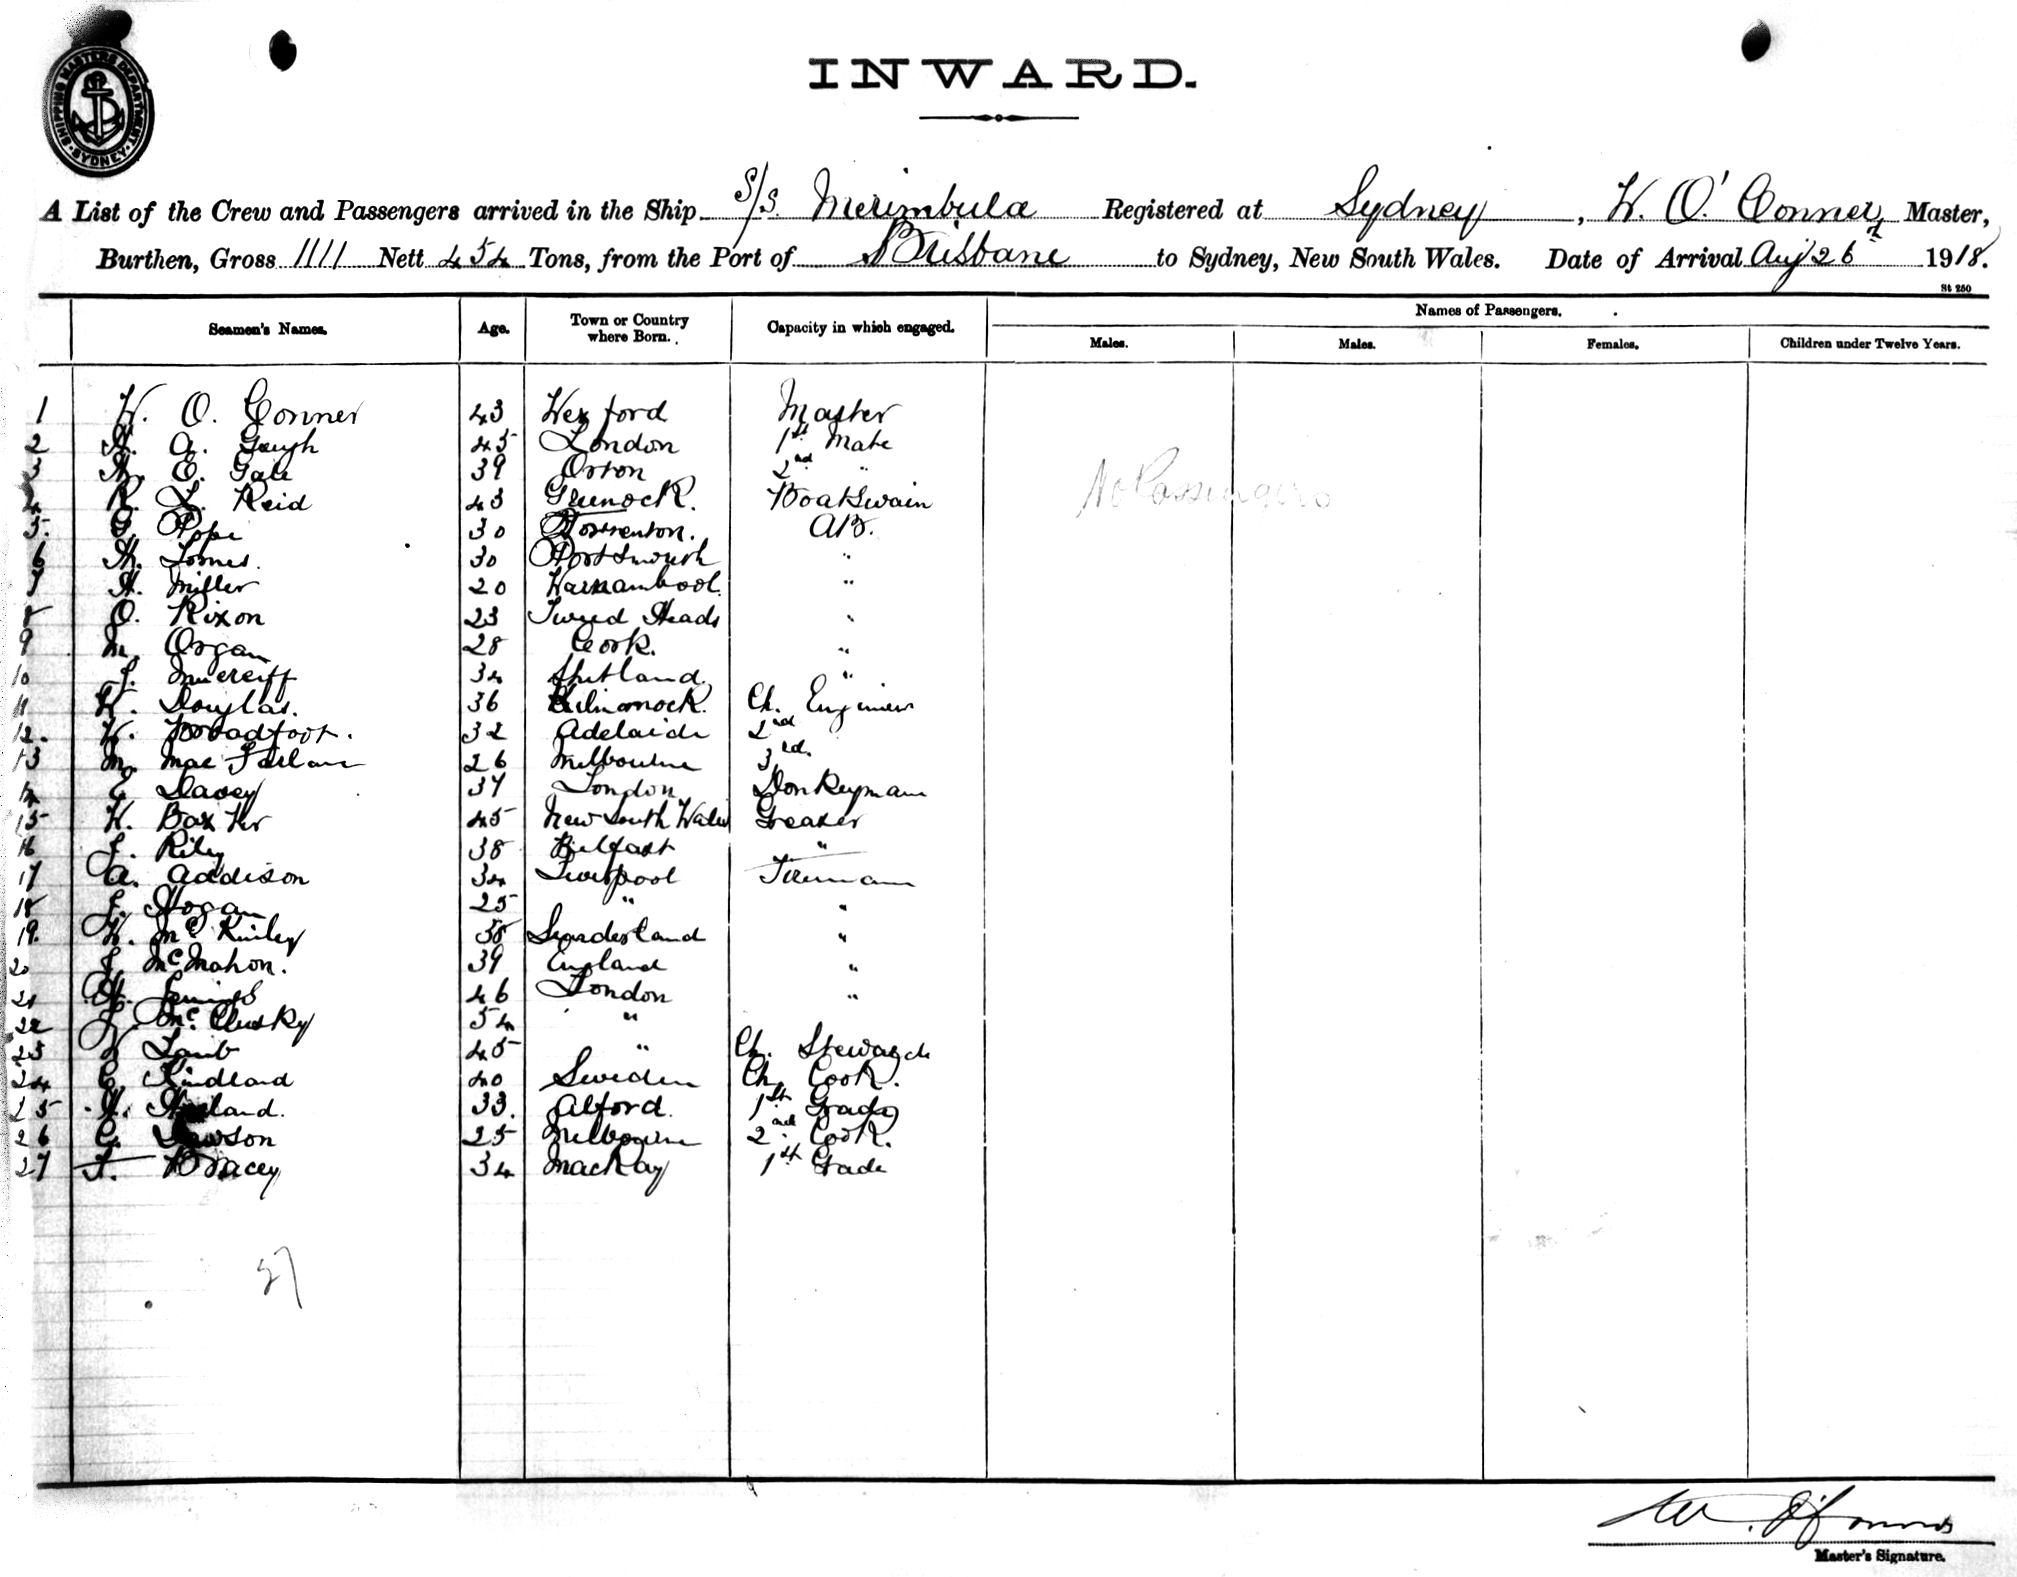 SHIPPING MASTERS DEPARTMENT. SYDNEY
INWARD.
A List of the Crew and Passengers arrived in the Ship S/S. Merimbula Registered at Sydney, W. O'Conner, Master,
Burthen, Gross 1111 Nett 454 Tons, from the Port of Brisbane to Sydney, New South Wales. Date of Arrival Aug 26 1918.
St 250
Seamen's Names. Age. Town or Country where Born. Capacity in which engaged. Names of Passengers.
Males. Males. Females. Children under Twelve Years.
1 W. O. Conner 43 Wexford Master
2 H. A. Gough 45 London 1st Mate
3 E. Gale 39 Orton 2nd "
4 R. L. Reid 43 Greenock. Boatswain
No Passengers
5. G. Pope 30 AB.
6 H. Tomes. 30 Portsmouth "
7 H. Miller 20 Warnambool. "
8 O. Rixon 23 Tweed Heads "
9 M. Organ 28 Cork. "
10 J. 34 Shetland "
11 W. Douglas. 36 Kilmarnock. Ch. Engineer
12. W. Broadfoot. 32 Adelaide 2nd
13 M. Mac Farlane 26 Melbourne 3rd.
14 E. Davey 37 London Donkeyman
15 W. Baxter 45 New South Wales Greaser
16 J. Riley 38 Belfast "
17 A. Addison 34 Liverpool Fireman
18 J. Hogan 25 " "
19. W. McKinley 38 Sunderland "
20 J. McMahon. 39 England "
21 H. 46 London "
22 J. McClusky 54 "
23 Lamb 45 " Ch. Steward
24 C. Lindland 40 Sweden Ch. Cook.
25 H. 33. Alford. 1st Grade
26 C. Dawson 25 Melbourne 2nd Cook.
27 F. Bracey 34 Mackay 1st Grade
27
W. O'Connor
Master's Signature.